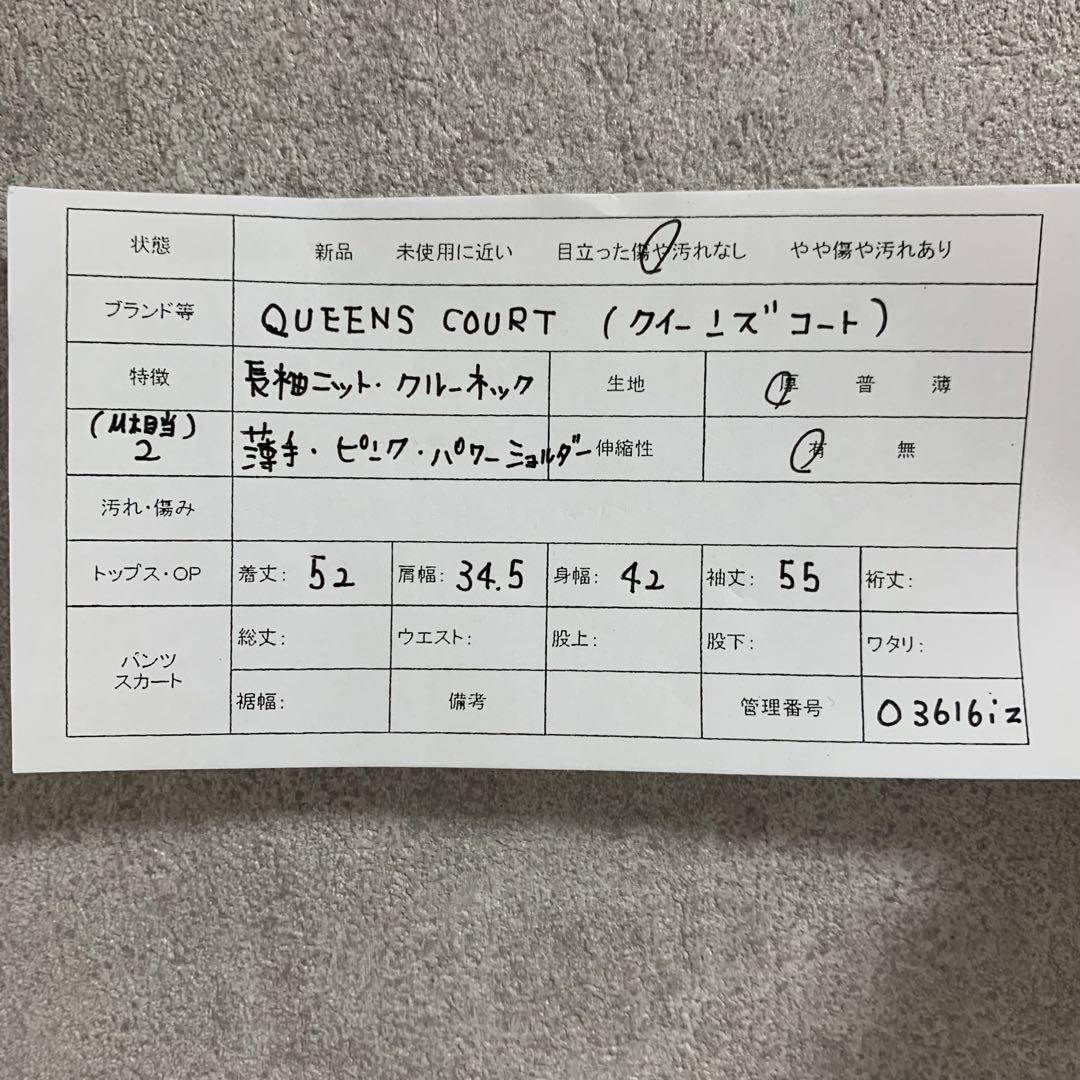 状態 新品 未使用に近い 目立った傷や汚れなし やや傷や汚れあり
ブランド等 QUEENS COURT (クイーンズコート)
特徴 長袖ニット・クルーネック 生地 厚 普 薄
(M相当) 2 薄手・ピンク・パワーショルダー 伸縮性 有 無
汚れ・傷み
トップス・OP 着丈: 52 肩幅: 34.5 身幅: 42 袖丈: 55 裄丈:
パンツ スカート 総丈: ウエスト: 股上: 股下: ワタリ:
裾幅: 備考 管理番号 03616iz